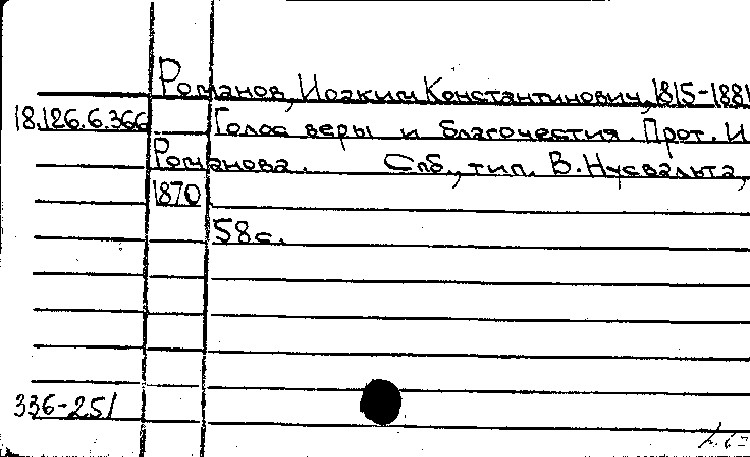 Романов, Иоаким Константинович, 1815-1881
18.126.6.366 Голос веры и благочестия Прот. И
Романова. Спб., тип. В. Нусвальта,
1870
58 с.
336-251